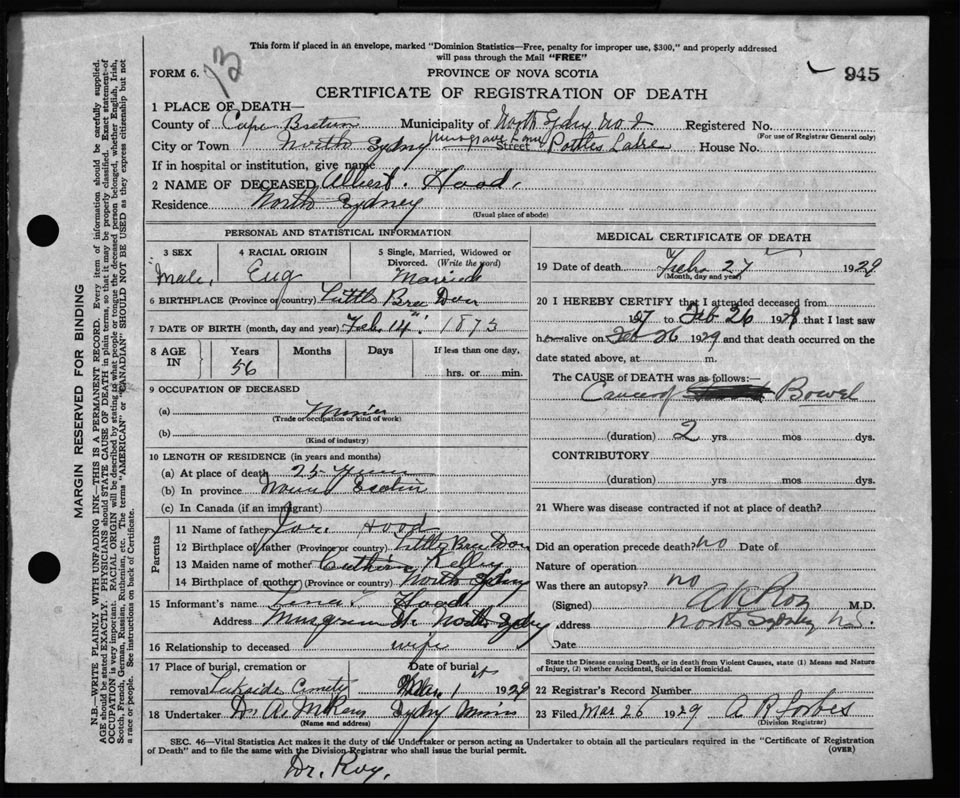 This form if placed in an envelope, marked "Dominion Statistics—Free, penalty for improper use, $300," and properly addressed
will pass through the Mail "FREE"
FORM 6.
13
PROVINCE OF NOVA SCOTIA
945
CERTIFICATE OF REGISTRATION OF DEATH
1 PLACE OF DEATH—
County of Cape Breton Municipality of North Sydney No. 2 Registered No.
(For use of Registrar General only)
City or Town North Sydney Musgrave Street Pottles Lake House No.
If in hospital or institution, give name
2 NAME OF DECEASED Albert. Hood.
Residence North Sydney
(Usual place of abode)
PERSONAL AND STATISTICAL INFORMATION
3 SEX
Male.
4 RACIAL ORIGIN
Eng
5 Single, Married, Widowed or
Divorced. (Write the word)
Married
6 BIRTHPLACE (Province or country) Little Bras Dor
7 DATE OF BIRTH (month, day and year) Feb. 14". 1873
8 AGE IN
Years
56
Months
Days
If less than one day,
hrs. or min.
9 OCCUPATION OF DECEASED
(a) Miner
(Trade or occupation or kind of work)
(b)
(Kind of industry)
10 LENGTH OF RESIDENCE (in years and months)
(a) At place of death 25 Years
(b) In province Nova Scotia
(c) In Canada (if an immigrant)
Parents
11 Name of father Jas. Hood
12 Birthplace of father (Province or country) Little Bras Dor
13 Maiden name of mother Kelley
14 Birthplace of mother (Province or country) North Sydney
15 Informant's name Lena Hood
Address Musgrave St. North Sydney
16 Relationship to deceased wife
17 Place of burial, cremation or Date of burial
removal Lakeside Cemety Mar 1 1929
18 Undertaker A. McKen Sydney Mines
(Name and address)
MEDICAL CERTIFICATE OF DEATH
19 Date of death Feb 27 1929
(Month, day and year)
20 I HEREBY CERTIFY that I attended deceased from
1927 to Feb 26 1929 that I last saw
h alive on Feb 26 1929 and that death occurred on the
date stated above, at m.
The CAUSE of DEATH was as follows:—
Cancer of Bowel
(duration) 2 yrs mos dys.
CONTRIBUTORY
(duration) yrs. mos dys.
21 Where was disease contracted if not at place of death?
Did an operation precede death? no Date of
Nature of operation
Was there an autopsy? no
(Signed) A K Roy M.D.
Address North Sydney N.S.
Date
State the Disease causing Death, or in death from Violent Causes, state (1) Means and Nature
of Injury, (2) whether Accidental, Suicidal or Homicidal.
22 Registrar's Record Number
23 Filed Mar 26 1929 A R Forbes
(Division Registrar)
SEC. 46—Vital Statistics Act makes it the duty of the Undertaker or person acting as Undertaker to obtain all the particulars required in the "Certificate of Registration
of Death" and to file the same with the Division Registrar who shall issue the burial permit.
(OVER)
Dr. Roy.
MARGIN RESERVED FOR BINDING
N.B.—WRITE PLAINLY WITH UNFADING INK—THIS IS A PERMANENT RECORD. Every item of information should be carefully supplied.
AGE should be stated EXACTLY. PHYSICIANS should STATE CAUSE OF DEATH in plain terms, so that it may be properly classified. Exact statement of
OCCUPATION is very important. RACIAL ORIGIN will be described by stating to what people or tongue the deceased person belonged, whether English, Irish,
Scotch, French, German, Russian, Ruthenian, etc. The terms "AMERICAN" or "CANADIAN" SHOULD NOT BE USED as they express citizenship but not
a race or people. See instructions on back of Certificate.